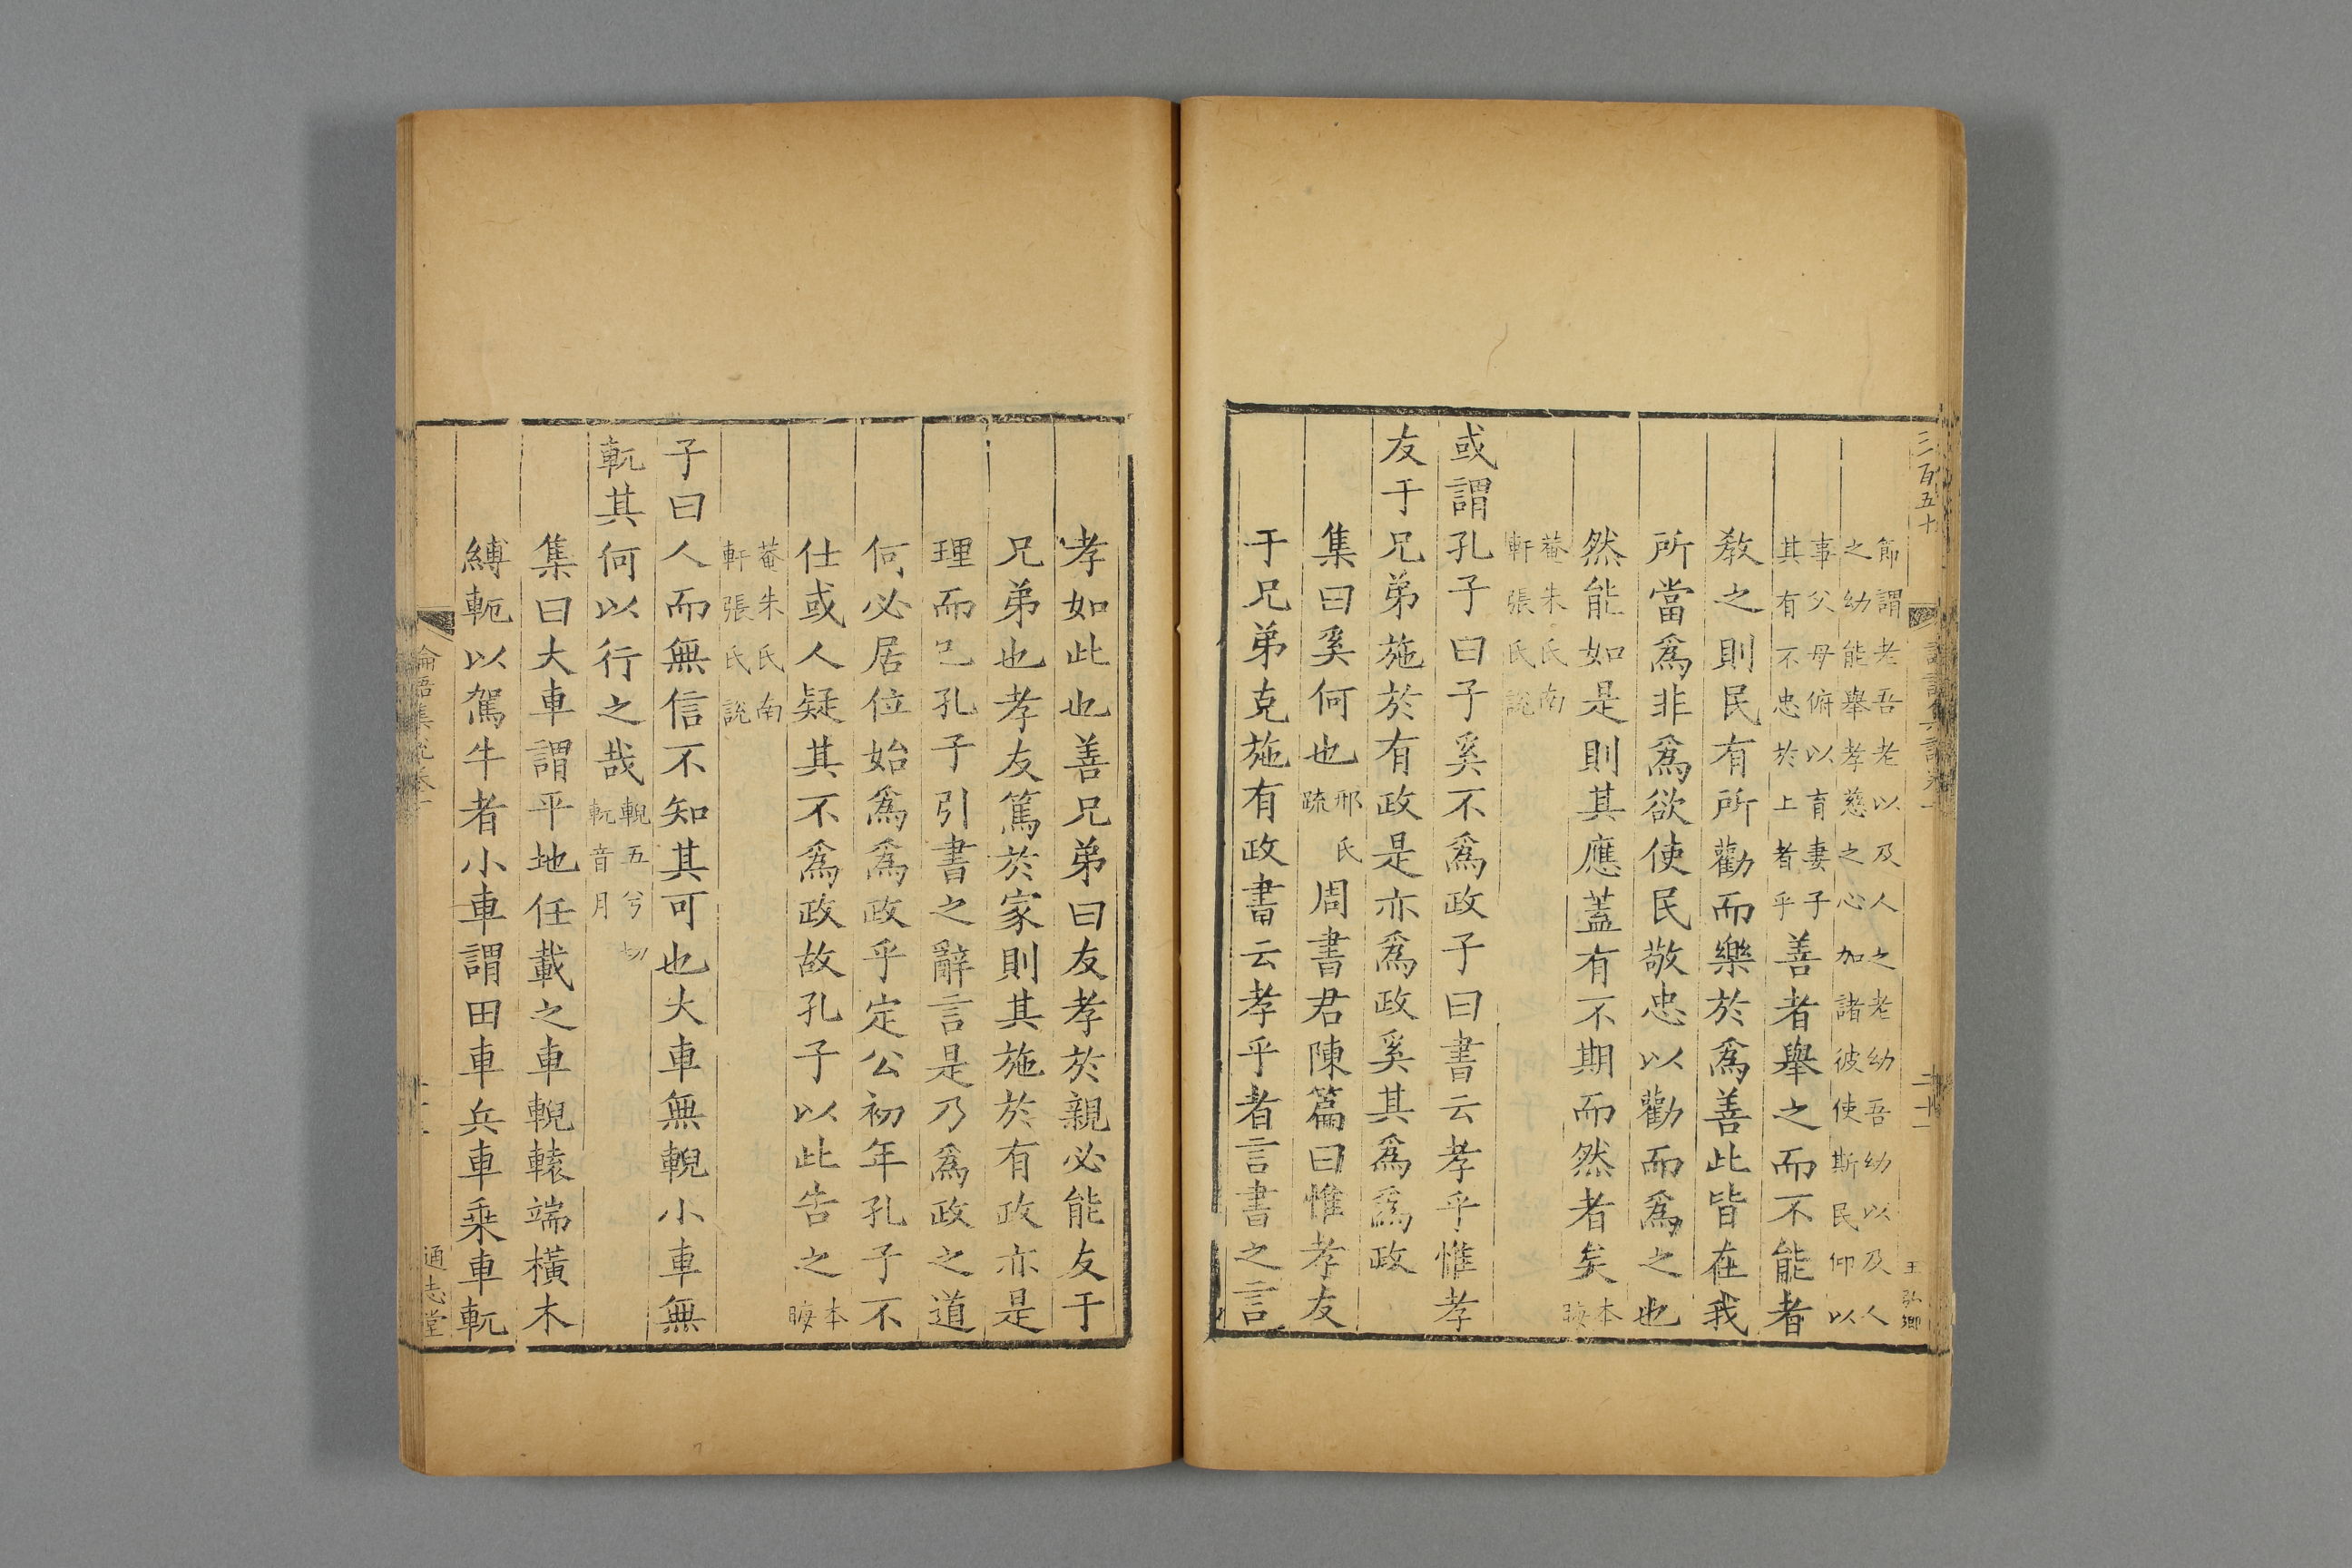 三百五十
節謂老吾老以及人之老幼吾幼以及人
之幼能舉孝慈之心加諸彼使斯民仰以
事父母俯以育妻子
其有不忠於上者乎
善者舉之而不能者
教之則民有所勸而樂於爲善此皆在我
所當爲非爲欲使民敬忠以勸而爲之也
然能如是則其應蓋有不期而然者矣
本
晦
菴朱氏南
軒張氏說
或謂孔子曰子奚不爲政子曰書云孝乎惟孝
友于兄弟施於有政是亦爲政奚其爲爲政
集曰奚何也
邢氏
疏
周書君陳篇曰惟孝友
于兄弟克施有政書云孝乎者言書之言
王弘卿
孝如此也善兄弟曰友孝於親必能友于
兄弟也孝友篤於家則其施於有政亦是
理而已孔子引書之辭言是乃爲政之道
何必居位始爲爲政乎定公初年孔子不
仕或人疑其不爲政故孔子以此告之
本
晦
菴朱氏南
軒張氏說
子曰人而無信不知其可也大車無輗小車無
軏其何以行之哉
輗五兮切
軏音月
集曰大車謂平地任載之車輗轅端橫木
縛軛以駕牛者小車謂田車兵車乘車軏
論語集說卷一
通志堂